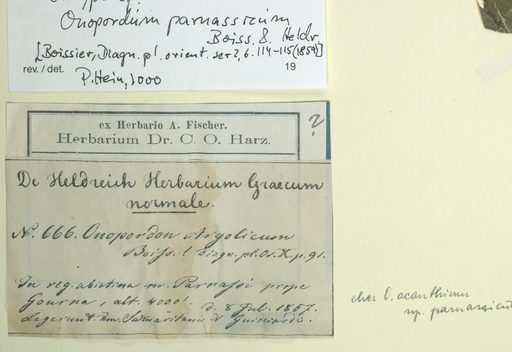 Onopordum parnassicum
Boiss. & Heldr.
[Boissier, Diagn. pl. orient. ser 2, 6. 114-115 (1859)]
rev. / det.
P. Hein, 2000
19
?
ex Herbario A. Fischer.
Herbarium Dr. C. O. Harz.
De Heldreich Herbarium Graecum
normale.
N. 666. Onopordon Argolicum
Boiss. ! Diagn. pl. Or. X. p. 91.
In reg. abietina m. Parnassi prope
Gourna, alt. 4000'. d. 8 Jul. 1857.
Legerunt am. Samaritani & Guicciardi.
eher O. acanthium
ssp. parnassicum